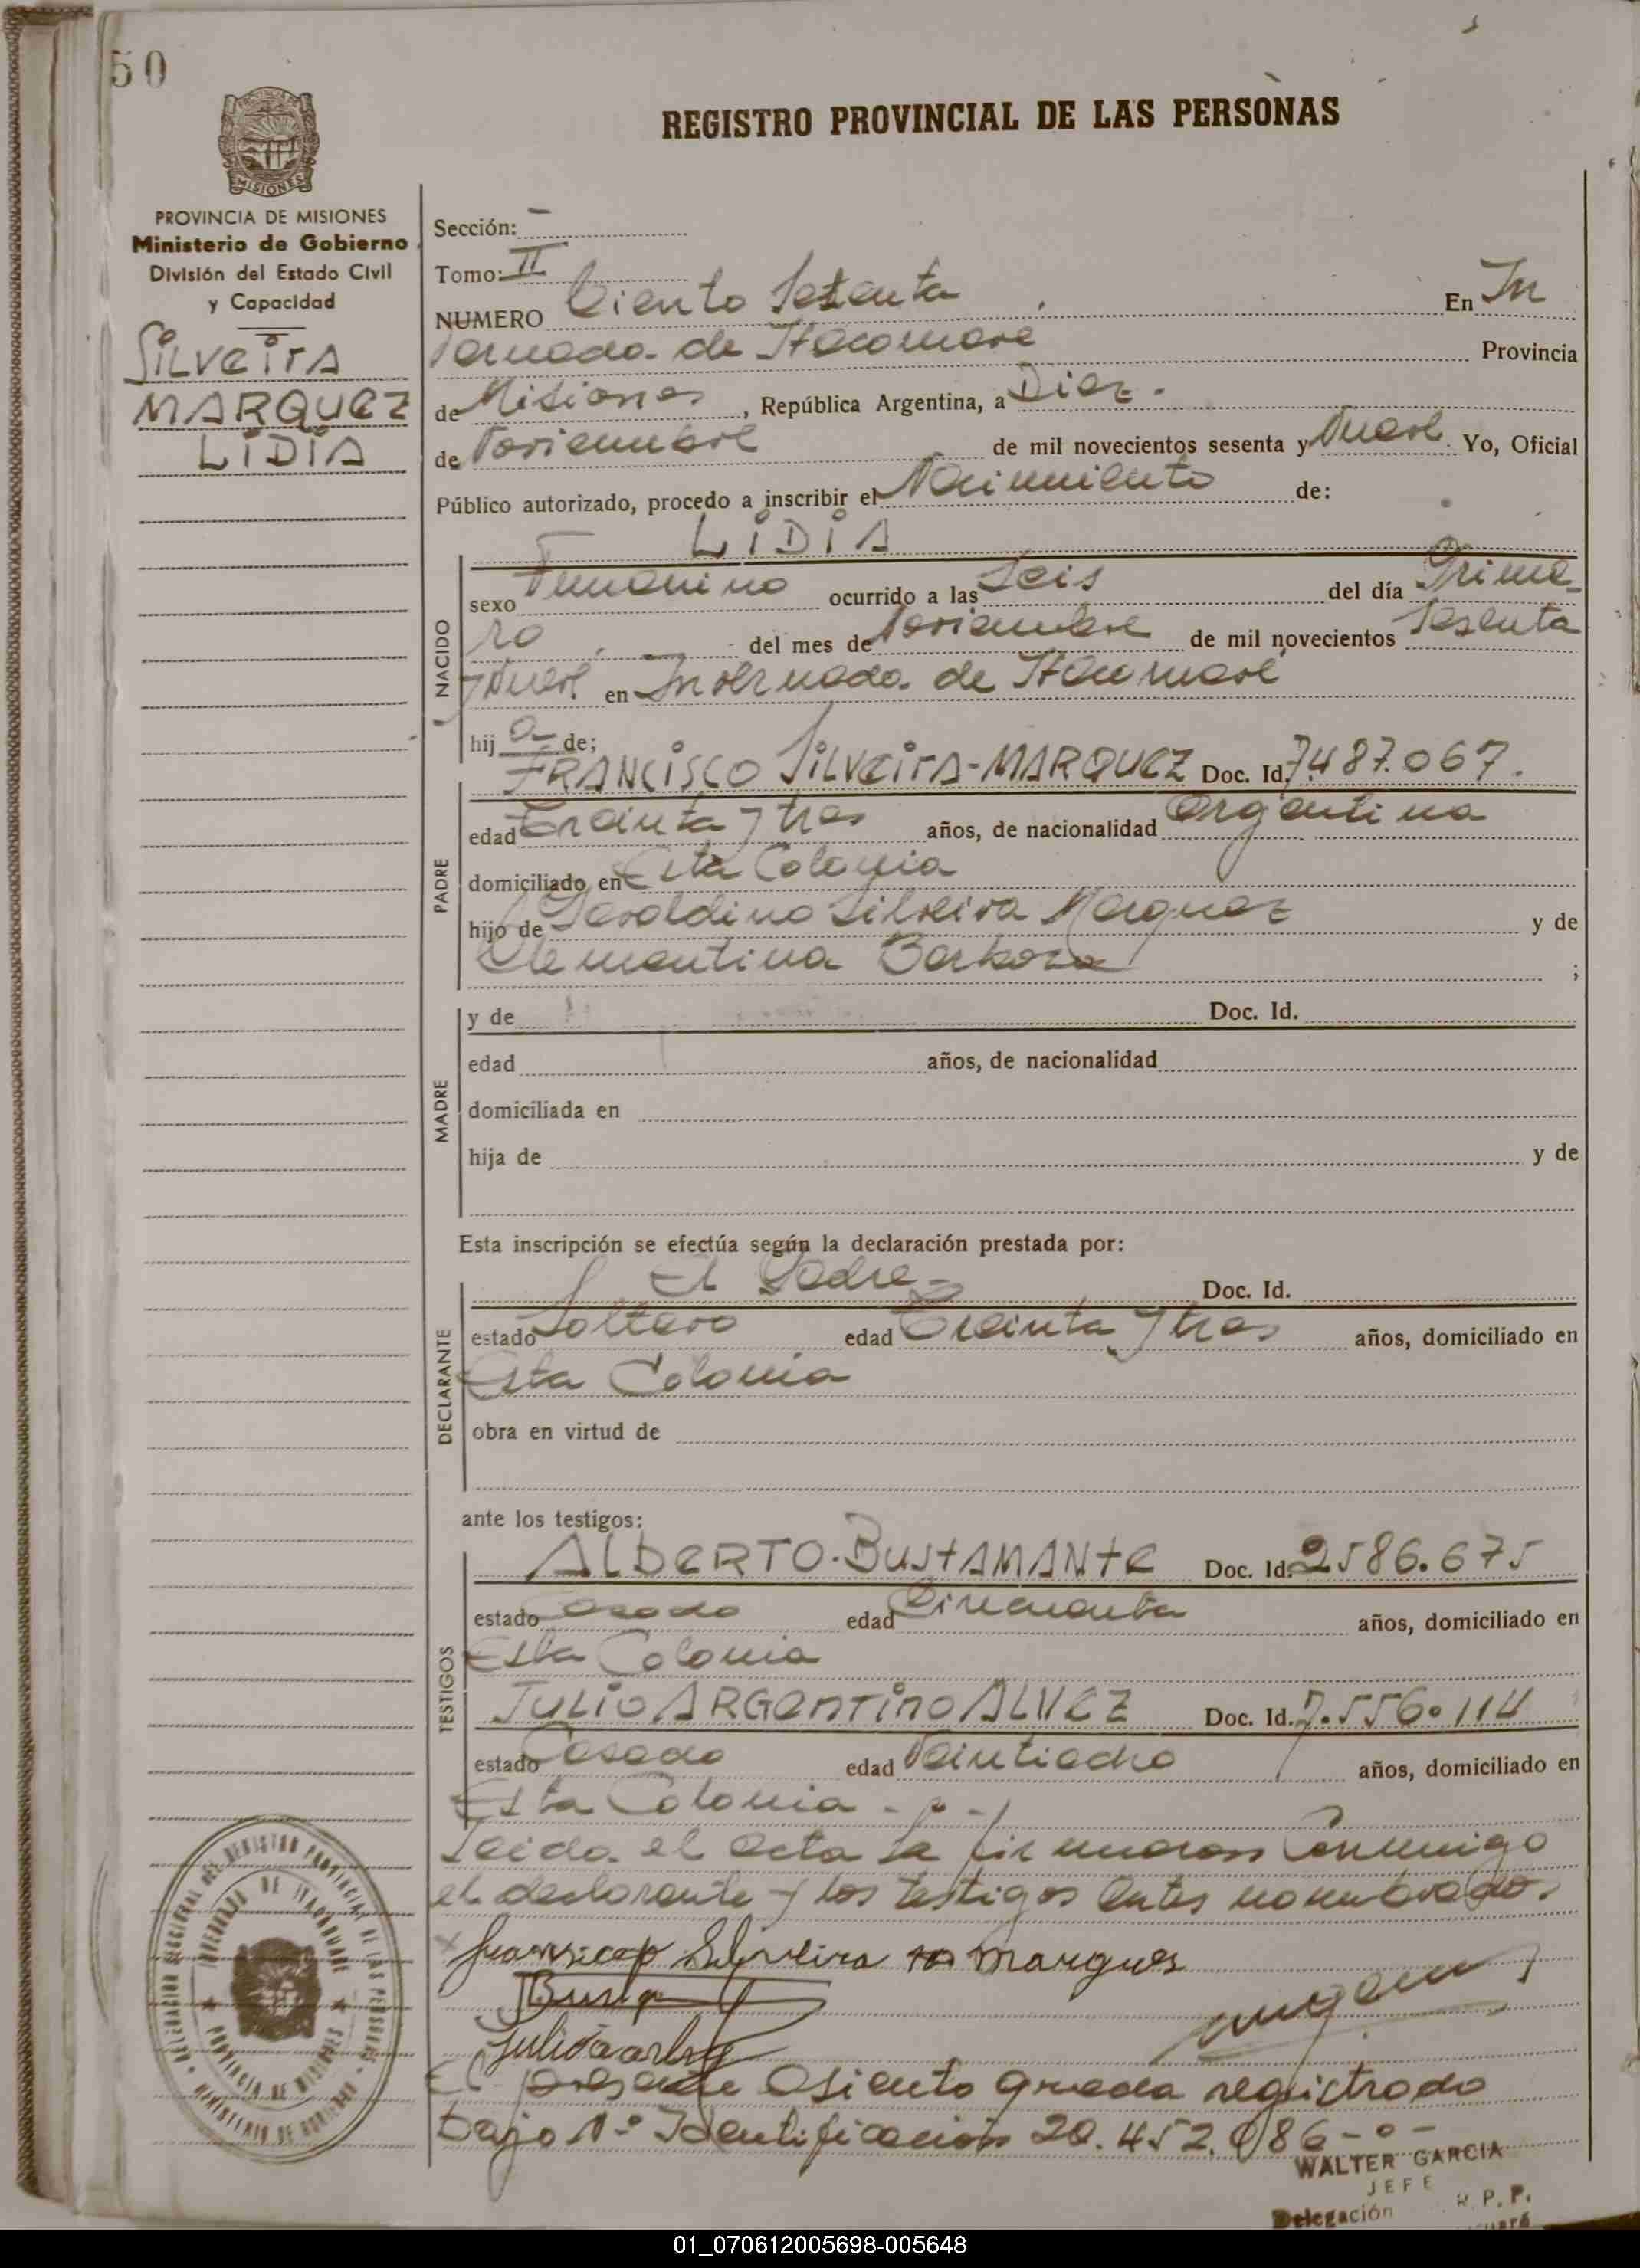 50
REGISTRO PROVINCIAL DE LAS PERSONAS
MISIONES
PROVINCIA DE MISIONES
Ministerio de Gobierno
División del Estado Civil
y Capacidad
SILVEIRA
MARQUEZ
LIDIA
Sección: –
Tomo: II
NUMERO Ciento Setenta . En In
vernada de Itacaruare Provincia
de Misiones, República Argentina, a Diez.
de Noviembre de mil novecientos sesenta y Nueve. Yo, Oficial
Público autorizado, procedo a inscribir el Nacimiento de:
LIDIA
NACIDO
sexo Femenino ocurrido a las Seis del día Prime
ro del mes de Noviembre de mil novecientos Sesenta
y Nueve en Invernada de Itacaruare
hij a de;
PADRE
FRANCISCO SILVEIRA-MARQUEZ Doc. Id. 7.487.067.
edad Treinta y tres años, de nacionalidad Argentina
domiciliado en Esta Colonia
hijo de Geraldino Silveira Marquez y de
Clementina Barboza ;
MADRE
y de Doc. Id.
edad años, de nacionalidad
domiciliada en
hija de y de
Esta inscripción se efectúa según la declaración prestada por:
DECLARANTE
El Padre Doc. Id.
estado Soltero edad Treinta y tres años, domiciliado en
Esta Colonia
obra en virtud de
ante los testigos:
TESTIGOS
ALBERTO BUSTAMANTE Doc. Id. 2586.675
estado Casado edad Cincuenta años, domiciliado en
Esta Colonia
JULIO ARGENTINO ALVEZ Doc. Id. 7.556.114
estado Casado edad Veintiocho años, domiciliado en
Esta Colonia
Leida el acta la firmaron Conmigo
el declarante y los testigos antes nombrados.
Silveira Marques
El presente Asiento queda registrado
bajo Nº Identificación 20.452.086
DELEGACION SECCIONAL DEL REGISTRO PROVINCIAL DE LAS PERSONAS
INVERNADA DE ITACARUARE
PROVINCIA DE MISIONES
MINISTERIO DE GOBIERNO
WALTER GARCIA
JEFE
Delegación R. P. P.
01_070612005698-005648